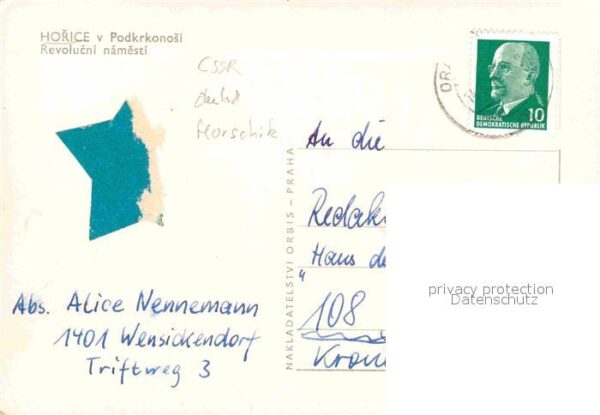 HOŘICE v Podkrkonoší
Revoluční náměstí
CSSR
Horschik
ORA
10
DEUTSCHE
DEMOKRATISCHE REPUBLIK
An die
Redak
Haus de
108
Kron
NAKLADATELSTVÍ ORBIS – PRAHA
privacy protection
Datenschutz
Abs. Alice Nennemann
1401 Wensickendorf
Triftweg 3